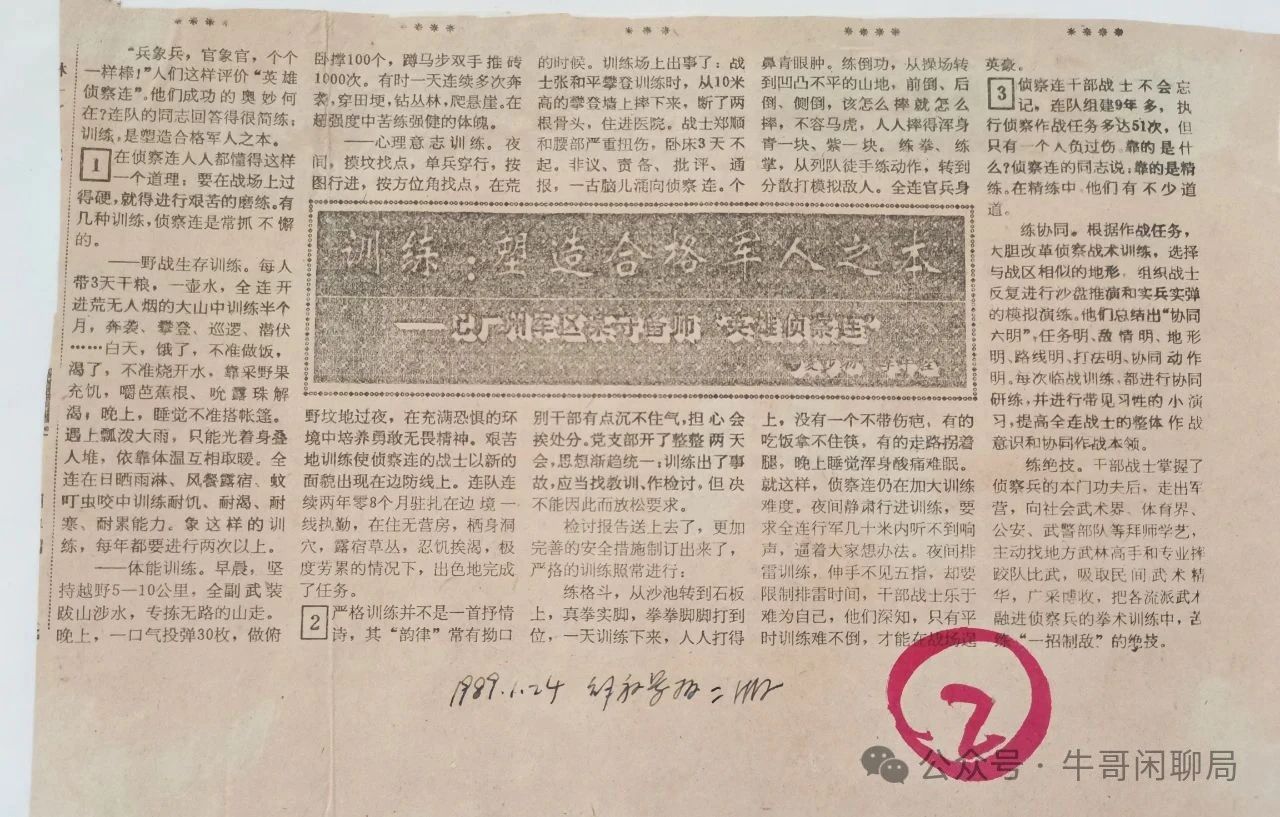 “兵象兵，官象官，个个
一样棒！”人们这样评价“英雄
侦察连”。他们成功的奥妙何
在？连队的同志回答得很简练：
训练，是塑造合格军人之本。
1 在侦察连人人都懂得这样
一个道理：要在战场上过
得硬，就得进行艰苦的磨练。有
几种训练，侦察连是常抓不懈
的。
——野战生存训练。每人
带3天干粮，一壶水，全连开
进荒无人烟的大山中训练半个
月，奔袭、攀登、巡逻、潜伏
……白天，饿了，不准做饭，
渴了，不准烧开水，靠采野果
充饥，嚼芭蕉根、吮露珠解
渴；晚上，睡觉不准搭帐篷。
遇上瓢泼大雨，只能光着身叠
人堆，依靠体温互相取暖。全
连在日晒雨淋、风餐露宿、蚊
叮虫咬中训练耐饥、耐渴、耐
寒、耐累能力。象这样的训
练，每年都要进行两次以上。
——体能训练。早晨，坚
持越野5—10公里，全副武装
跋山涉水，专拣无路的山走。
晚上，一口气投弹30枚，做俯
卧撑100个，蹲马步双手推砖
1000次。有时一天连续多次奔
袭，穿田埂，钻丛林，爬悬崖。在
超强度中苦练强健的体魄。
——心理意志训练。夜
间，摸坟找点，单兵穿行，按
图行进，按方位角找点，在荒
训练：塑造合格军人之本
——记广州军区某守备师“英雄侦察连”
野坟地过夜，在充满恐惧的环
境中培养勇敢无畏精神。艰苦
地训练使侦察连的战士以新的
面貌出现在边防线上。连队连
续两年零8个月驻扎在边境一
线执勤，在住无营房，栖身洞
穴，露宿草丛，忍饥挨渴，极
度劳累的情况下，出色地完成
了任务。
2 严格训练并不是一首抒情
诗，其“韵律”常有拗口
的时候。训练场上出事了：战
士张和平攀登训练时，从10米
高的攀登墙上摔下来，断了两
根骨头，住进医院。战士郑顺
和腰部严重扭伤，卧床3天不
起。非议、责备、批评、通
报，一古脑儿涌向侦察连。个
别干部有点沉不住气，担心会
挨处分。党支部开了整整两天
会，思想渐趋统一：训练出了事
故，应当找教训、作检讨，但决
不能因此而放松要求。
检讨报告送上去了，更加
完善的安全措施制订出来了，
严格的训练照常进行：
练格斗，从沙池转到石板
上，真拳实脚，拳拳脚脚打到
位，一天训练下来，人人打得
鼻青眼肿。练倒功，从操场转
到凹凸不平的山地，前倒、后
倒、侧倒，该怎么摔就怎么
摔，不容马虎，人人摔得浑身
青一块、紫一块。练拳、练
掌，从列队徒手练动作，转到
分散打模拟敌人。全连官兵身
上，没有一个不带伤疤，有的
吃饭拿不住筷，有的走路拐着
腿，晚上睡觉浑身酸痛难眠。
就这样，侦察连仍在加大训练
难度。夜间静肃行进训练，要
求全连行军几十米内听不到响
声，逼着大家想办法。夜间排
雷训练，伸手不见五指，却要
限制排雷时间，干部战士乐于
难为自己，他们深知，只有平
时训练难不倒，才能在战场逞
英豪。
3 侦察连干部战士不会忘
记，连队组建9年多，执
行侦察作战任务多达51次，但
只有一个人负过伤。靠的是什
么？侦察连的同志说：靠的是精
练。在精练中，他们有不少道
道。
练协同。根据作战任务，
大胆改革侦察战术训练，选择
与战区相似的地形，组织战士
反复进行沙盘推演和实兵实弹
的模拟演练。他们总结出“协同
六明”，任务明、敌情明、地形
明、路线明、打法明、协同动作
明。每次临战训练，都进行协同
研练，并进行带见习性的小演
习，提高全连战士的整体作战
意识和协同作战本领。
练绝技。干部战士掌握了
侦察兵的本门功夫后，走出军
营，向社会武术界、体育界、
公安、武警部队等拜师学艺，
主动找地方武林高手和专业摔
跤队比武，吸取民间武术精
华，广采博收，把各流派武术
融进侦察兵的拳术训练中，苦
练“一招制敌”的绝技。
1989.1.24 解放军报二版
2
公众号·牛哥闲聊局